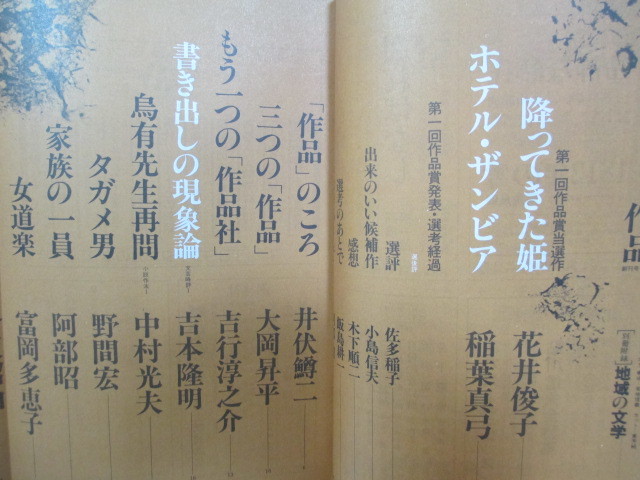 作品
創刊号
[特別附録]
地域の文学
第一回作品賞当選作
降ってきた姫
花井俊子
ホテル・ザンビア
稲葉真弓
第一回作品賞発表・選考経過
選後評
選評
佐多稲子
出来のいい候補作
小島信夫
感想
木下順二
選考のあとで
飯島耕一
「作品」のころ
井伏鱒二
三つの「作品」
大岡昇平
もう一つの「作品社」
吉行淳之介
書き出しの現象論
文芸時評1
吉本隆明
烏有先生再問
小説作法1
中村光夫
タガメ男
野間宏
家族の一員
阿部昭
女道楽
富岡多恵子